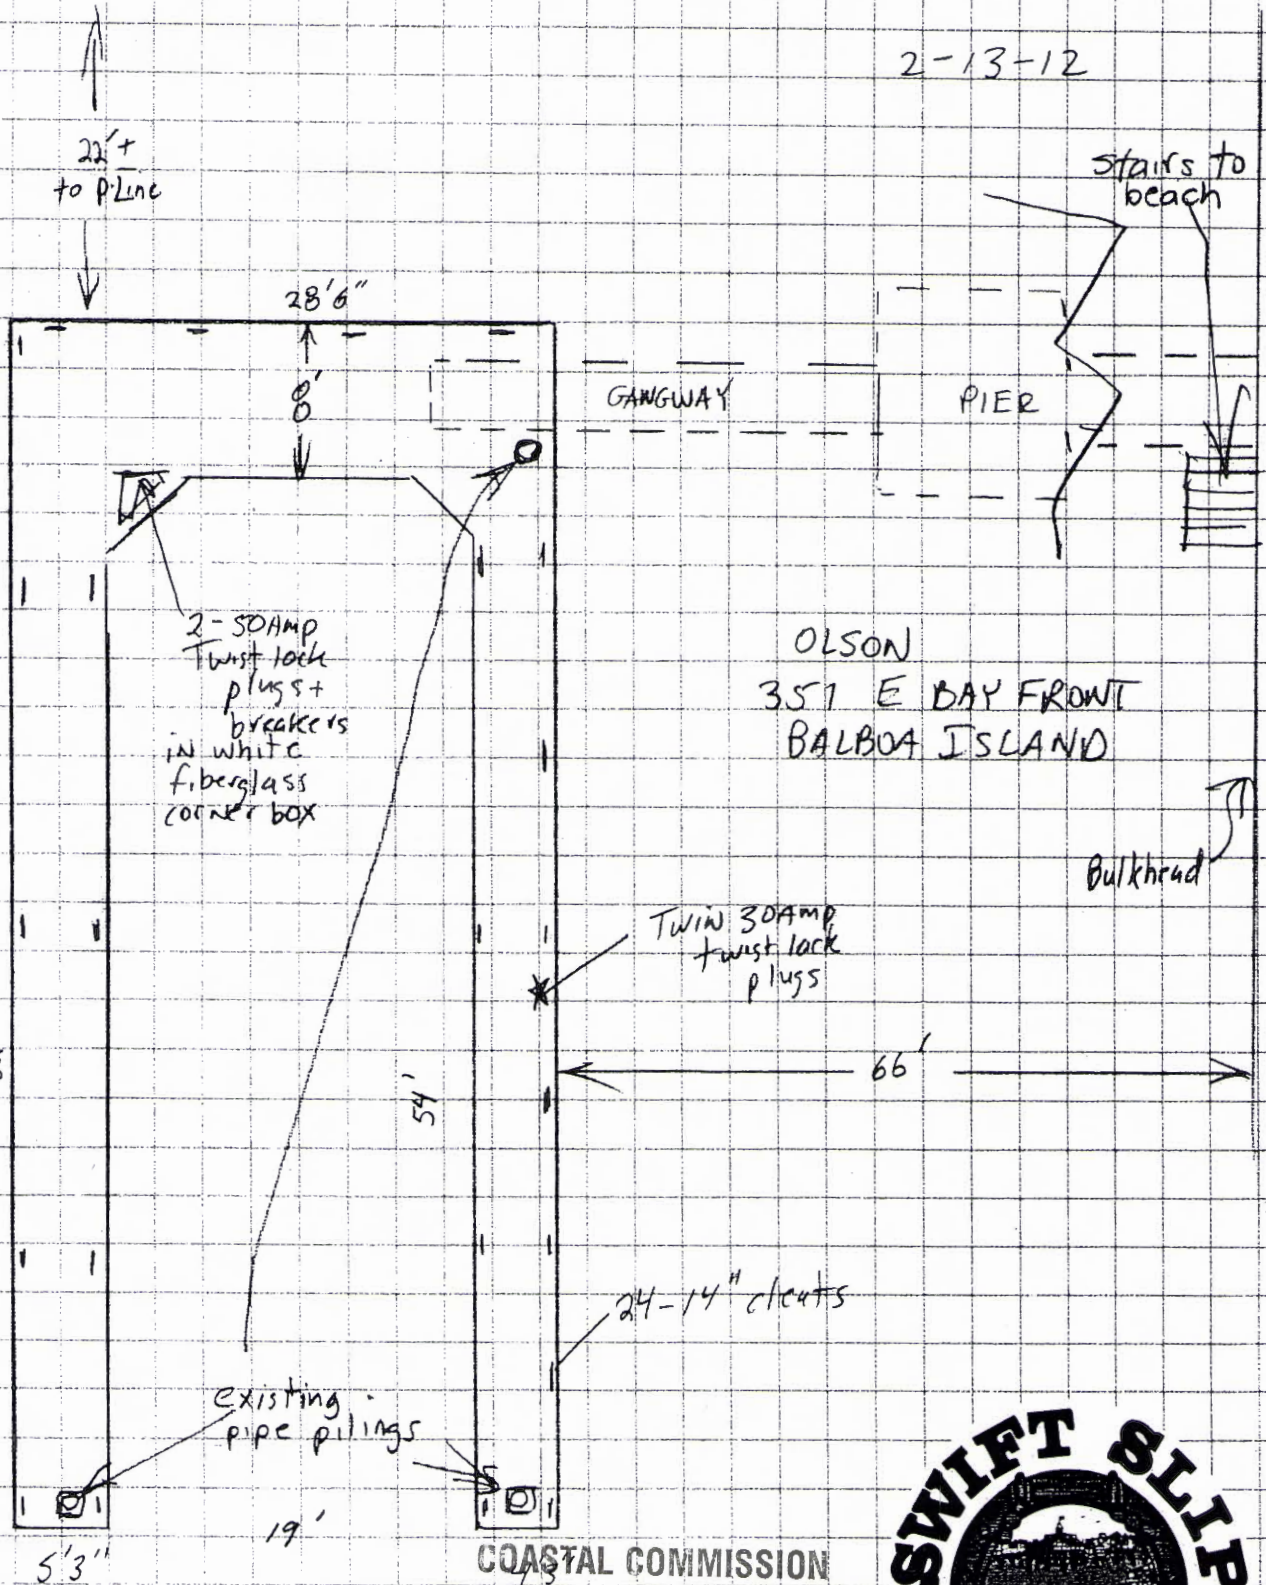 2-13-12
22'+
to P.Line
stairs to
beach
28'6"
8'
GANGWAY
PIER
2-50Amp
Twist lock
plugs+
breakers
in white
fiberglass
corner box
OLSON
351 E BAY FRONT
BALBOA ISLAND
Bulkhead
Twin 30Amp
twist lock
plugs
66'
54'
24-14" cleats
existing
pipe pilings
19'
5'3"
4'3"
COASTAL COMMISSION
SWIFT SLIP